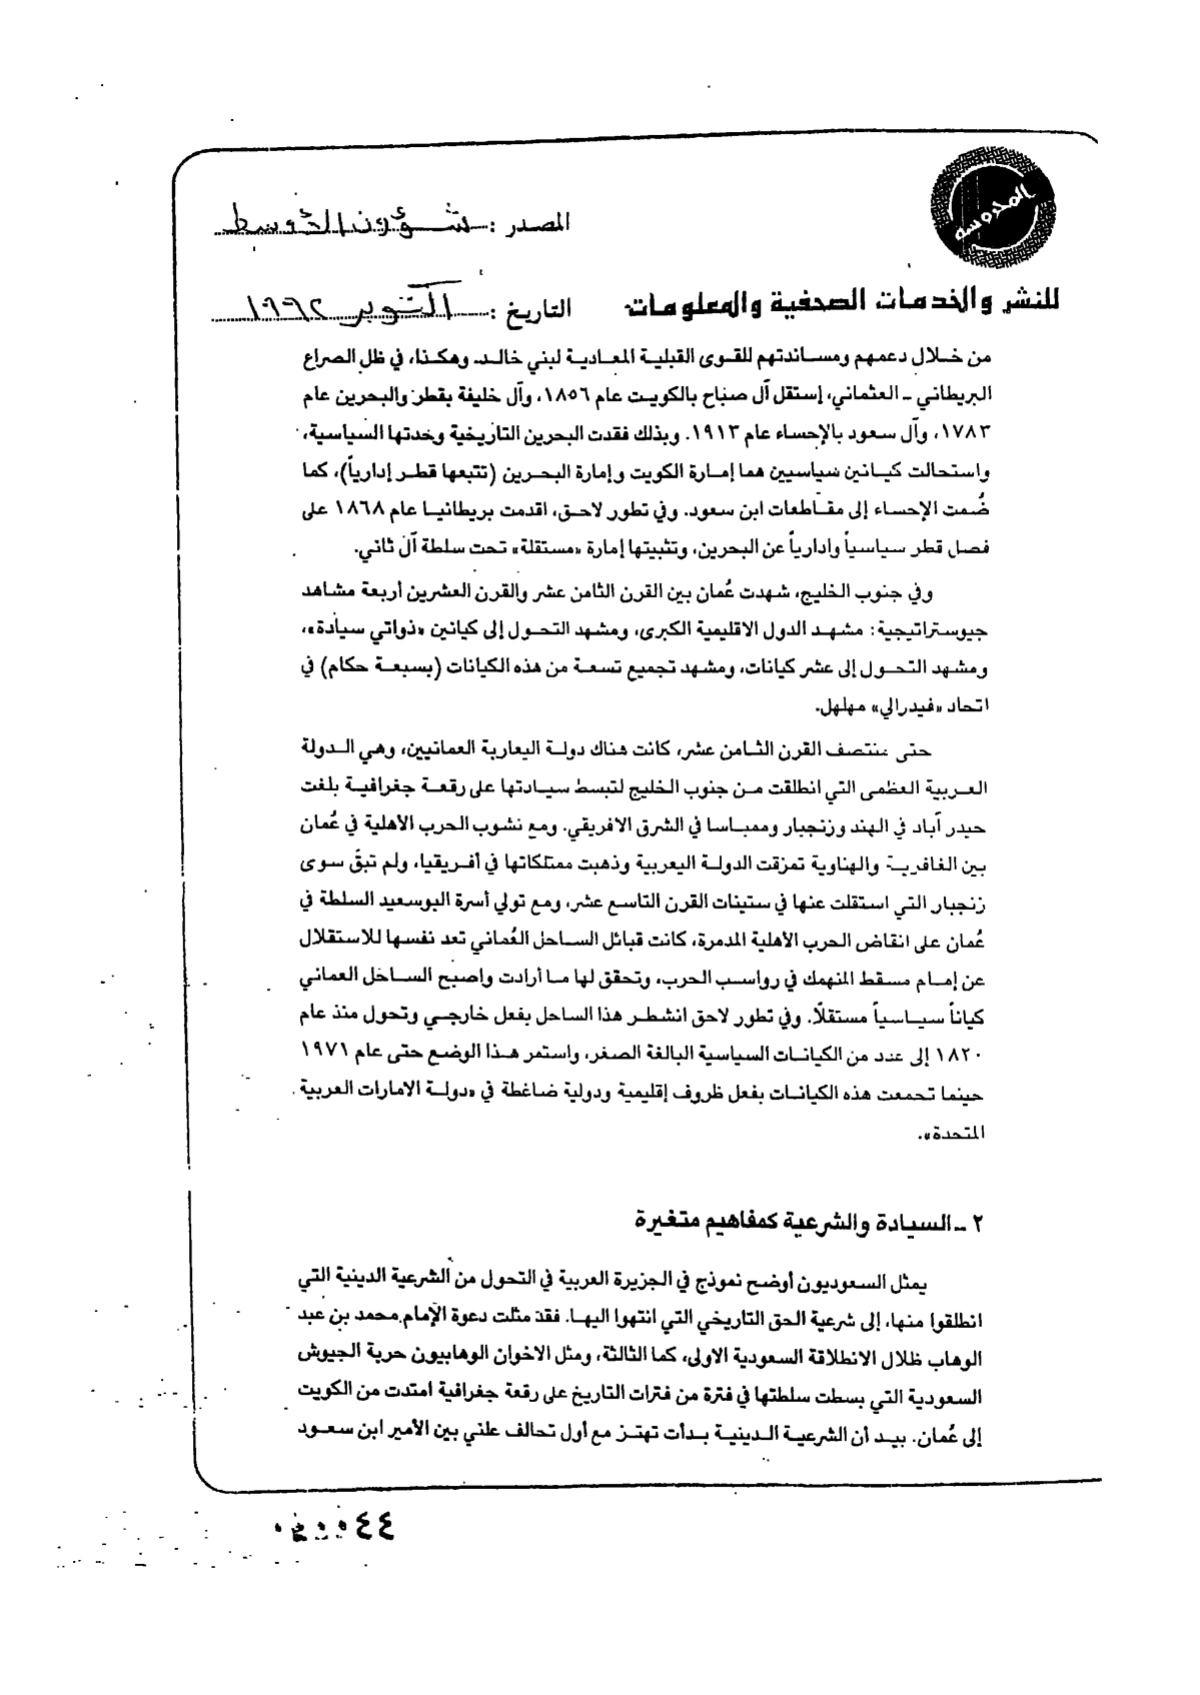 المحروسة
المصدر : شؤون الأوسط
للنشر والخدمات الصحفية والمعلومات
التاريخ : أكتوبر ١٩٩٢
من خلال دعمهم ومساندتهم للقوى القبلية المعادية لبني خالد. وهكذا، في ظل الصراع
البريطاني ـ العثماني، إستقل آل صباح بالكويت عام ١٨٥٦، وآل خليفة بقطر والبحرين عام
١٧٨٣، وآل سعود بالإحساء عام ١٩١٣. وبذلك فقدت البحرين التاريخية وحدتها السياسية،
واستحالت كيانين سياسيين هما إمارة الكويت وإمارة البحرين (تتبعها قطر إدارياً)، كما
ضُمت الإحساء إلى مقاطعات ابن سعود. وفي تطور لاحق، اقدمت بريطانيا عام ١٨٦٨ على
فصل قطر سياسياً وادارياً عن البحرين، وتثبيتها إمارة «مستقلة» تحت سلطة آل ثاني.
وفي جنوب الخليج، شهدت عُمان بين القرن الثامن عشر والقرن العشرين أربعة مشاهد
جيوستراتيجية: مشهد الدول الاقليمية الكبرى، ومشهد التحول إلى كيانين «ذواتي سيادة»،
ومشهد التحول إلى عشر كيانات، ومشهد تجميع تسعة من هذه الكيانات (بسبعة حكام) في
اتحاد «فيدرالي» مهلهل.
حتى منتصف القرن الثامن عشر، كانت هناك دولة اليعاربة العمانيين، وهي الدولة
العربية العظمى التي انطلقت من جنوب الخليج لتبسط سيادتها على رقعة جغرافية بلغت
حيدر آباد في الهند وزنجبار وممباسا في الشرق الافريقي. ومع نشوب الحرب الأهلية في عُمان
بين الغافرية والهناوية تمزقت الدولة اليعربية وذهبت ممتلكاتها في أفريقيا، ولم تبقَ سوى
زنجبار التي استقلت عنها في ستينات القرن التاسع عشر، ومع تولي أسرة البوسعيد السلطة في
عُمان على انقاض الحرب الأهلية المدمرة، كانت قبائل الساحل العُماني تعد نفسها للاستقلال
عن إمام مسقط المنهمك في رواسب الحرب، وتحقق لها ما أرادت واصبح الساحل العماني
كياناً سياسياً مستقلاً. وفي تطور لاحق انشطر هذا الساحل بفعل خارجي وتحول منذ عام
١٨٢٠ إلى عدد من الكيانات السياسية البالغة الصغر، واستمر هذا الوضع حتى عام ١٩٧١
حينما تجمعت هذه الكيانات بفعل ظروف إقليمية ودولية ضاغطة في «دولة الامارات العربية
المتحدة».
٢ ـ السيادة والشرعية كمفاهيم متغيرة
يمثل السعوديون أوضح نموذج في الجزيرة العربية في التحول من الشرعية الدينية التي
انطلقوا منها، إلى شرعية الحق التاريخي التي انتهوا اليها. فقد مثلت دعوة الإمام محمد بن عبد
الوهاب ظلال الانطلاقة السعودية الاولى، كما الثالثة، ومثل الاخوان الوهابيون حربة الجيوش
السعودية التي بسطت سلطتها في فترة من فترات التاريخ على رقعة جغرافية امتدت من الكويت
إلى عُمان. بيد أن الشرعية الدينية بدأت تهتز مع أول تحالف علني بين الأمير ابن سعود